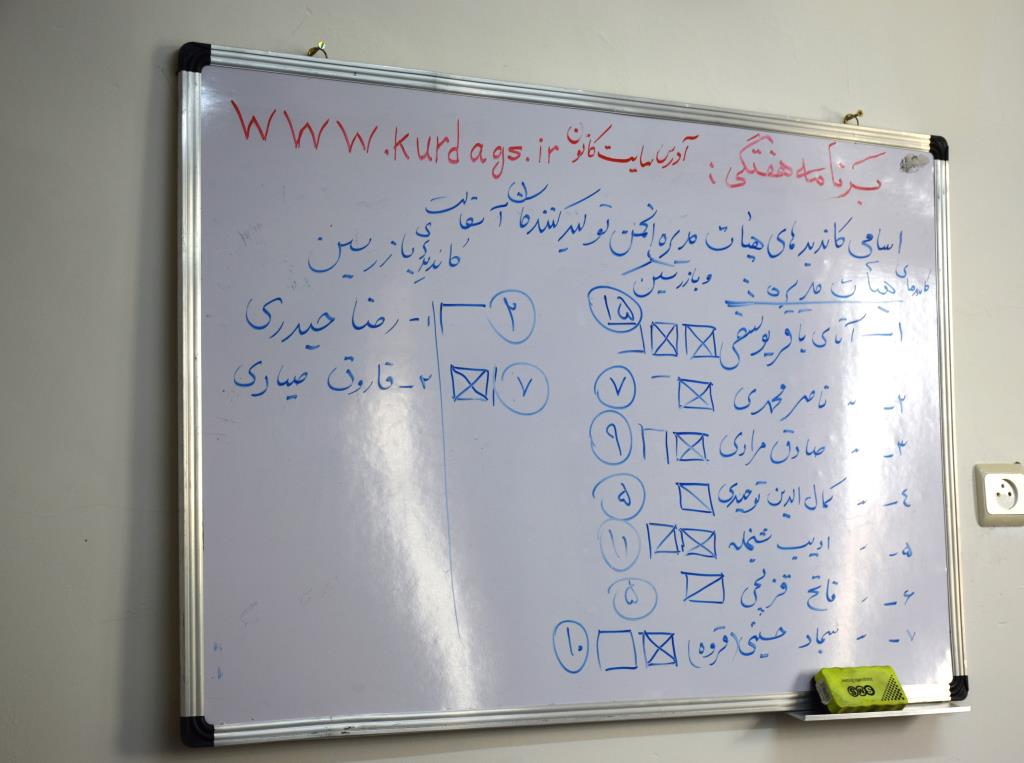 برنامه هفتگی : آدرس سایت کانون www.kurdags.ir
اسامی کاندیدهای هیأت مدیره انجمن تولیدکنندگان آسفالت و بازرسین
کاندیدهای هیأت مدیره :
۱ - آقای باقر یوسفی ۱۵
۲ - " ناصر محمدی ۷
۳ - " صادق مرادی ۹
٤ - " کمال الدین توحیدی ۵
۵ - " ادیب ۱۱
۶ - " فاتح قزلجی ۵
۷ - " حسینی (قروه) ۱۰
کاندیدای بازرسین
۱ - رضا حیدری ۲
۲ - فاروق صیادی ۷